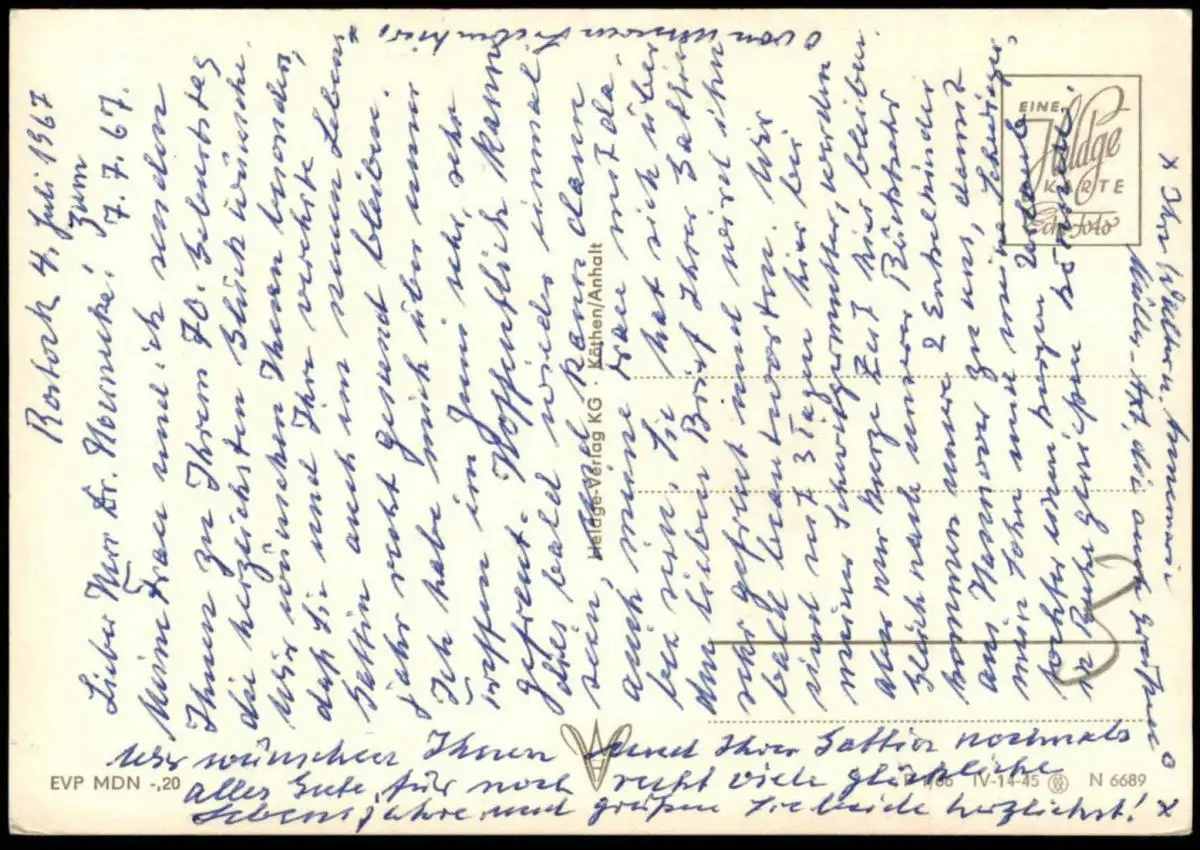 Rostock 4. Juli 1967
zum
7.7.67.
Lieber Herr Dr.
Meine Frau und ich senden
Ihnen zu Ihrem 70. Geburtstag
die herzlichsten Glückwünsche.
Wir wünschen Ihnen besonders,
daß Sie und Ihre verehrte
Gattin auch im neuen Lebens
jahr recht gesund bleiben.
Ich habe mich über unser
Treffen im Juni sehr, sehr
gefreut. Hoffentlich kann
dies bald wieder einmal
sein, und kann dann
auch meine Frau mit da
bei sein. Sie hat sich über
den lieben Brief Ihrer Gattin
sehr gefreut und wird ihn
bald beantworten. Wir
sind seit 3 Tagen hier bei
meiner Schwiegermutter, werden
aber nur kurze Zeit hier bleiben.
Gleich nach unserer Rückkehr
kommen unsere 2 Enkelkinder
aus Hannover zu uns, damit
mein Sohn und meine Schwieger
tochter einen kurzen Urlaub
genießen können.
Wir wünschen Ihnen und Ihrer Gattin nochmals
alles Gute für noch recht viele glückliche
Lebensjahre und grüßen Sie beide herzlichst!
x Ihre Annemarie
Müller- die
o von unseren Lieben hier,
EINE
Heldge
KARTE
Echt Foto
Heldge-Verlag KG · Köthen/Anhalt
EVP MDN -,20
P 1/66 IV-14-45 N 6689